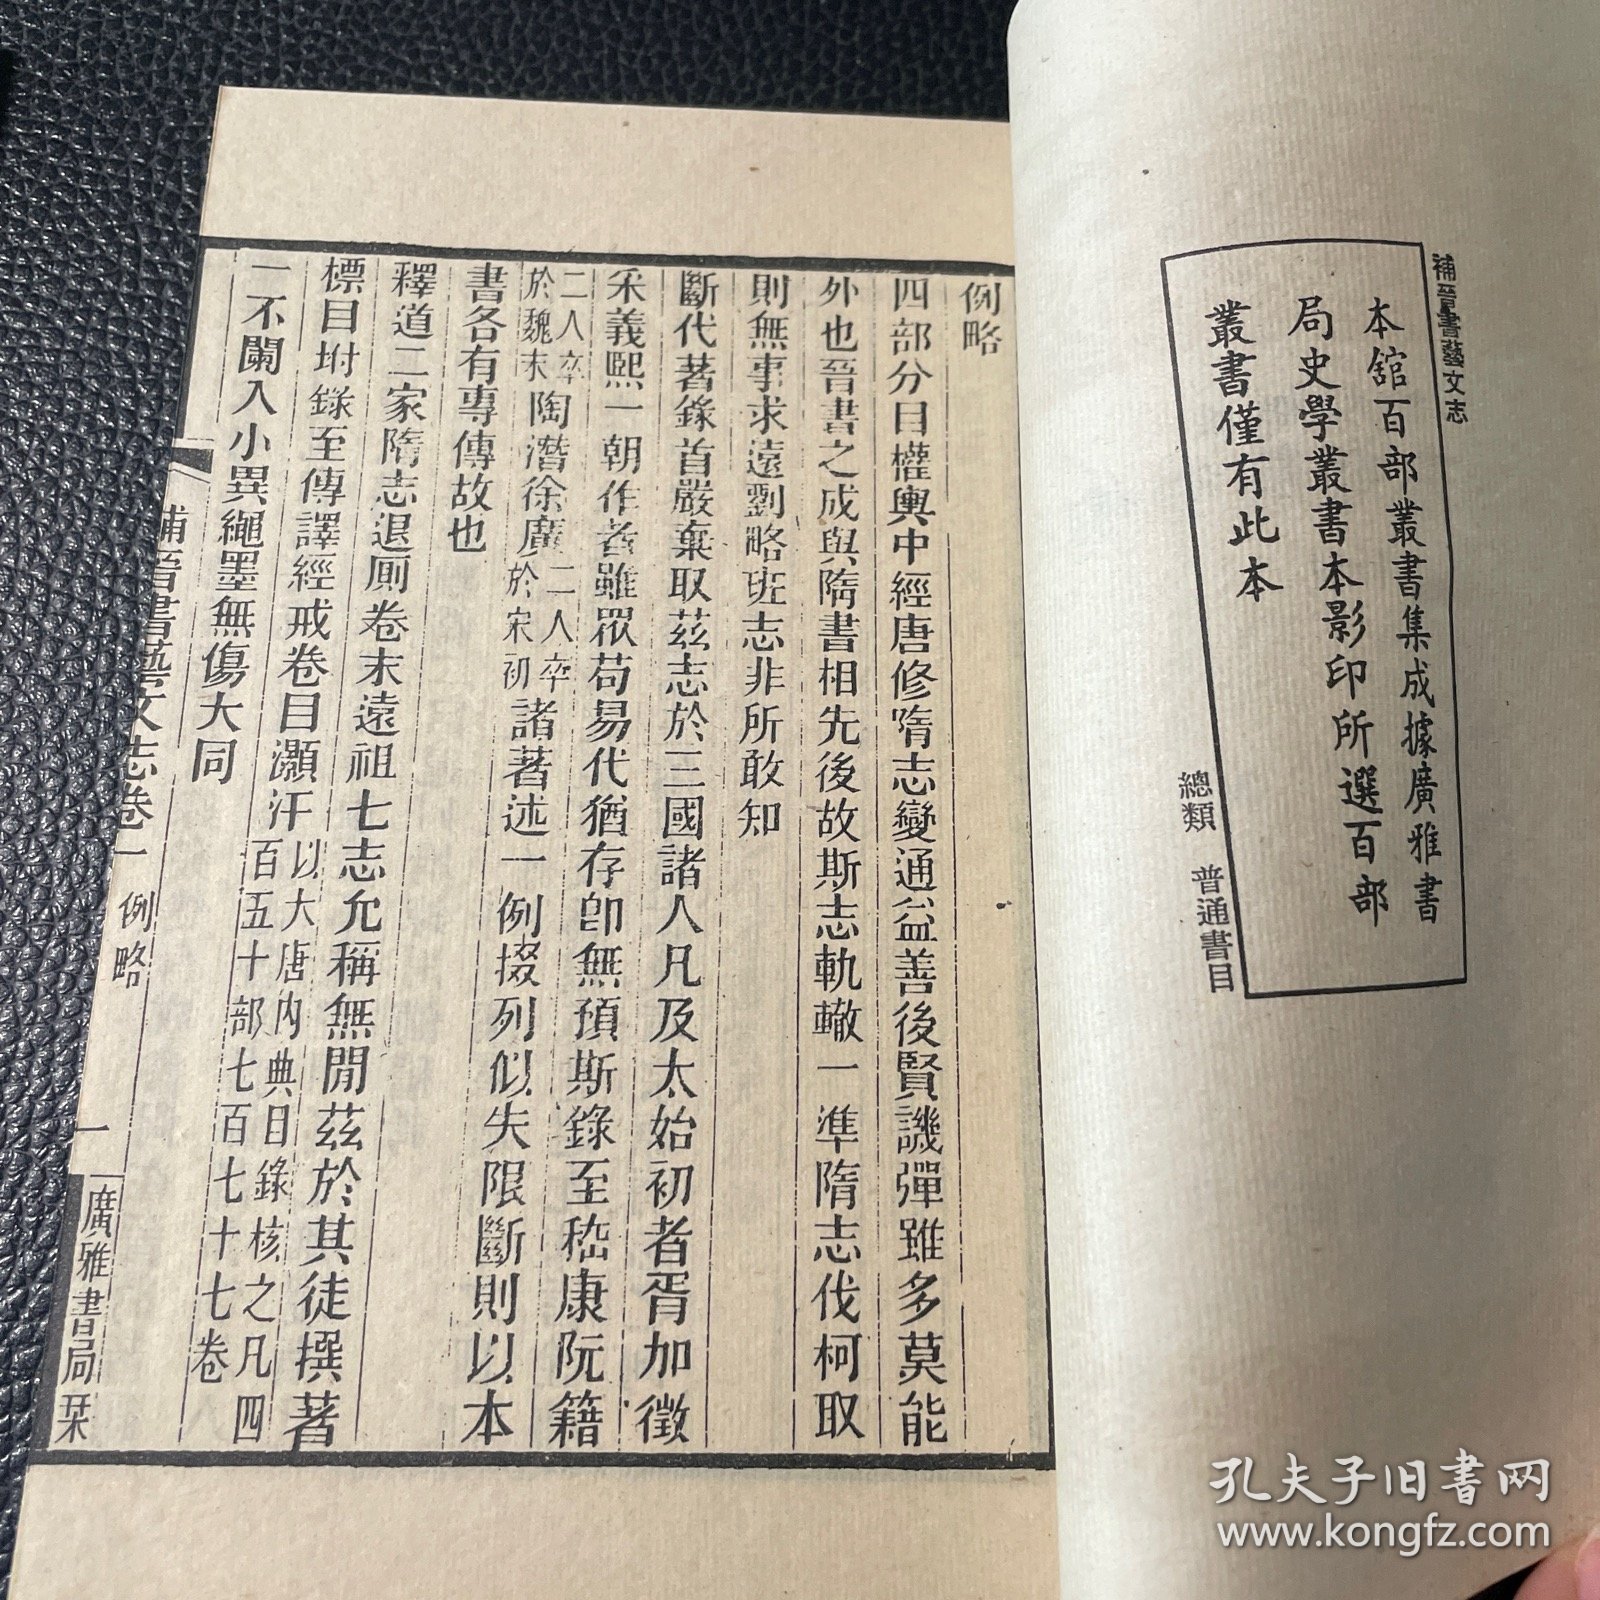 補晉書藝文志
本館百部叢書集成據廣雅書
局史學叢書本影印所選百部
叢書僅有此本
總類 普通書目
例略
四部分目權輿中經唐修隋志變通益善後賢譏彈雖多莫能
外也晉書之成與隋書相先後故斯志軌轍一準隋志伐柯取
則無事求遠劉略班志非所敢知
斷代著錄首嚴棄取茲志於三國諸人凡及太始初者胥加徵
采義熙一朝作者雖眾苟易代猶存卽無預斯錄至嵇康阮籍
二人卒於魏末陶潛徐廣二人卒於宋初諸著述一例掇列似失限斷則以本
書各有專傳故也
釋道二家隋志退厠卷末遠祖七志允稱無閒茲於其徒撰著
標目坿錄至傳譯經戒卷目灝汗以大唐內典目錄核之凡四百五十部七百七十七卷
一不闌入小異繩墨無傷大同
補晉書藝文志卷一 例略
一
廣雅書局栞
孔夫子旧书网
www.kongfz.com